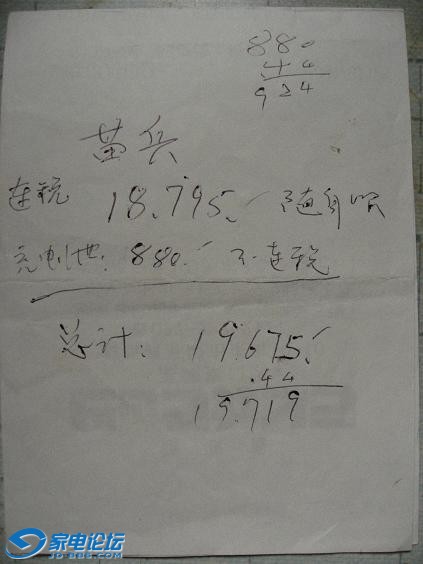 880
44
924
苗兵
连税 18.795. 随身听
充电池: 880. 不连税
总计: 19675.
.44
19.719
家电论坛
JD-BBS.COM